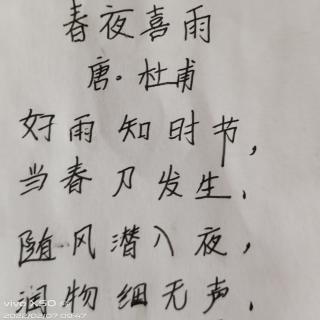 春夜喜雨
唐·杜甫
好雨知时节，
当春刀发生、
随风潜入夜，
润物细无声.
vivo X50
2022/02/07 09:47